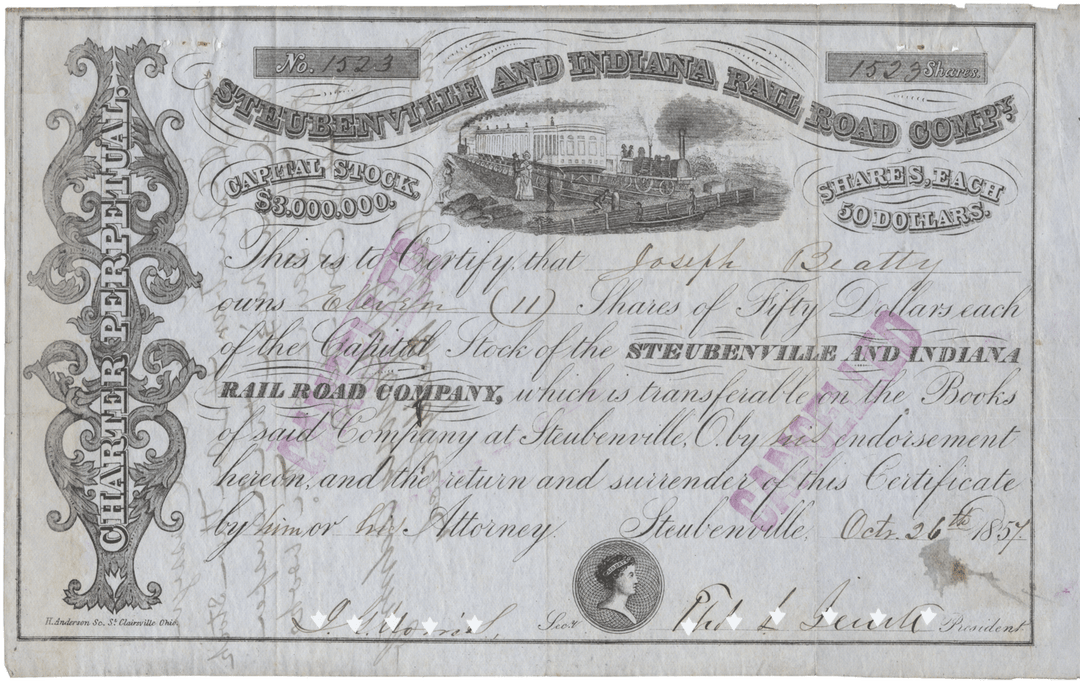 No. 1523
1523 Shares.
STEUBENVILLE AND INDIANA RAIL ROAD COMPY.
CAPITAL STOCK,
$3.000.000.
SHARES, EACH
50 DOLLARS.
CHARTER PERPETUAL.
This is to Certify, that Joseph Beatty
owns Eleven (11) Shares of Fifty Dollars each
of the Capital Stock of the STEUBENVILLE AND INDIANA
RAIL ROAD COMPANY, which is transferable on the Books
of said Company at Steubenville, O. by his endorsement
hereon, and the return and surrender of this Certificate
by him or his Attorney. Steubenville, Octr. 26th 1857
CANCELLED
CANCELLED
H. Anderson Sc. St. Clairsville Ohio.
Secy.
President